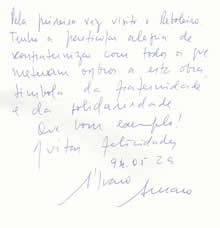 Pela primeira vez visito o Reboleiro.
Tenho a particular alegria de
confraternizar com todos os que
meteram ombros a esta obra,
símbolo da fraternidade
e da solidariedade
Que bom exemplo!
Muitas felicidades
94.05.29
Álvaro Amaro